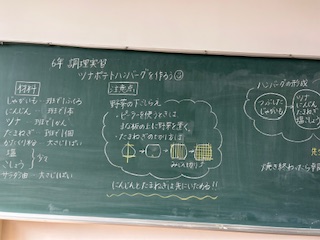 6年 調理実習
ツナポテトハンバーグを作ろう②
材料
じゃがいも…班で1ふくろ
にんじん…班で1本
ツナ 班で1かん
たまねぎ…班で1個
かたくり粉 大さじ1ぱい
塩
こしょう
少々
サラダ油…大さじ1ぱい
注意点
野菜の下ごしらえ
・ピーラーを使うときは
まな板の上に野菜を置く。
・たまねぎのきりかたは
みじん切り
にんじんとたまねぎは先にいためる!!
ハンバーグの形成
つぶした
じゃがいも
ツナ
にんじん
たまねぎ
塩
こしょう
焼き終わったら